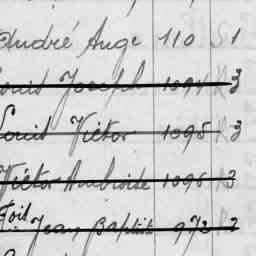 André Ange 110 S 1
Louis Joseph 1094 R 3
Louis Victor 1095 R 3
Victor Ambroise 1096 R 3
Jean Baptiste 972 2